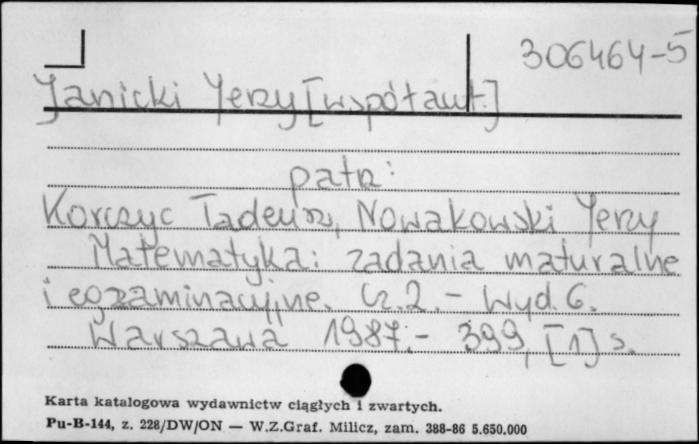 306464-5
Janicki Jerzy [współaut.]
patrz:
Korczyc Tadeusz, Nowakowski Jerzy
Matematyka: zadania maturalne
i egzaminacyjne. Cz.2. - Wyd. 6.
Warszawa 1987.- 399, [1] s.
Karta katalogowa wydawnictw ciągłych i zwartych.
Pu-B-144, z. 228/DW/ON — W.Z.Graf. Milicz, zam. 388-86 5.650.000